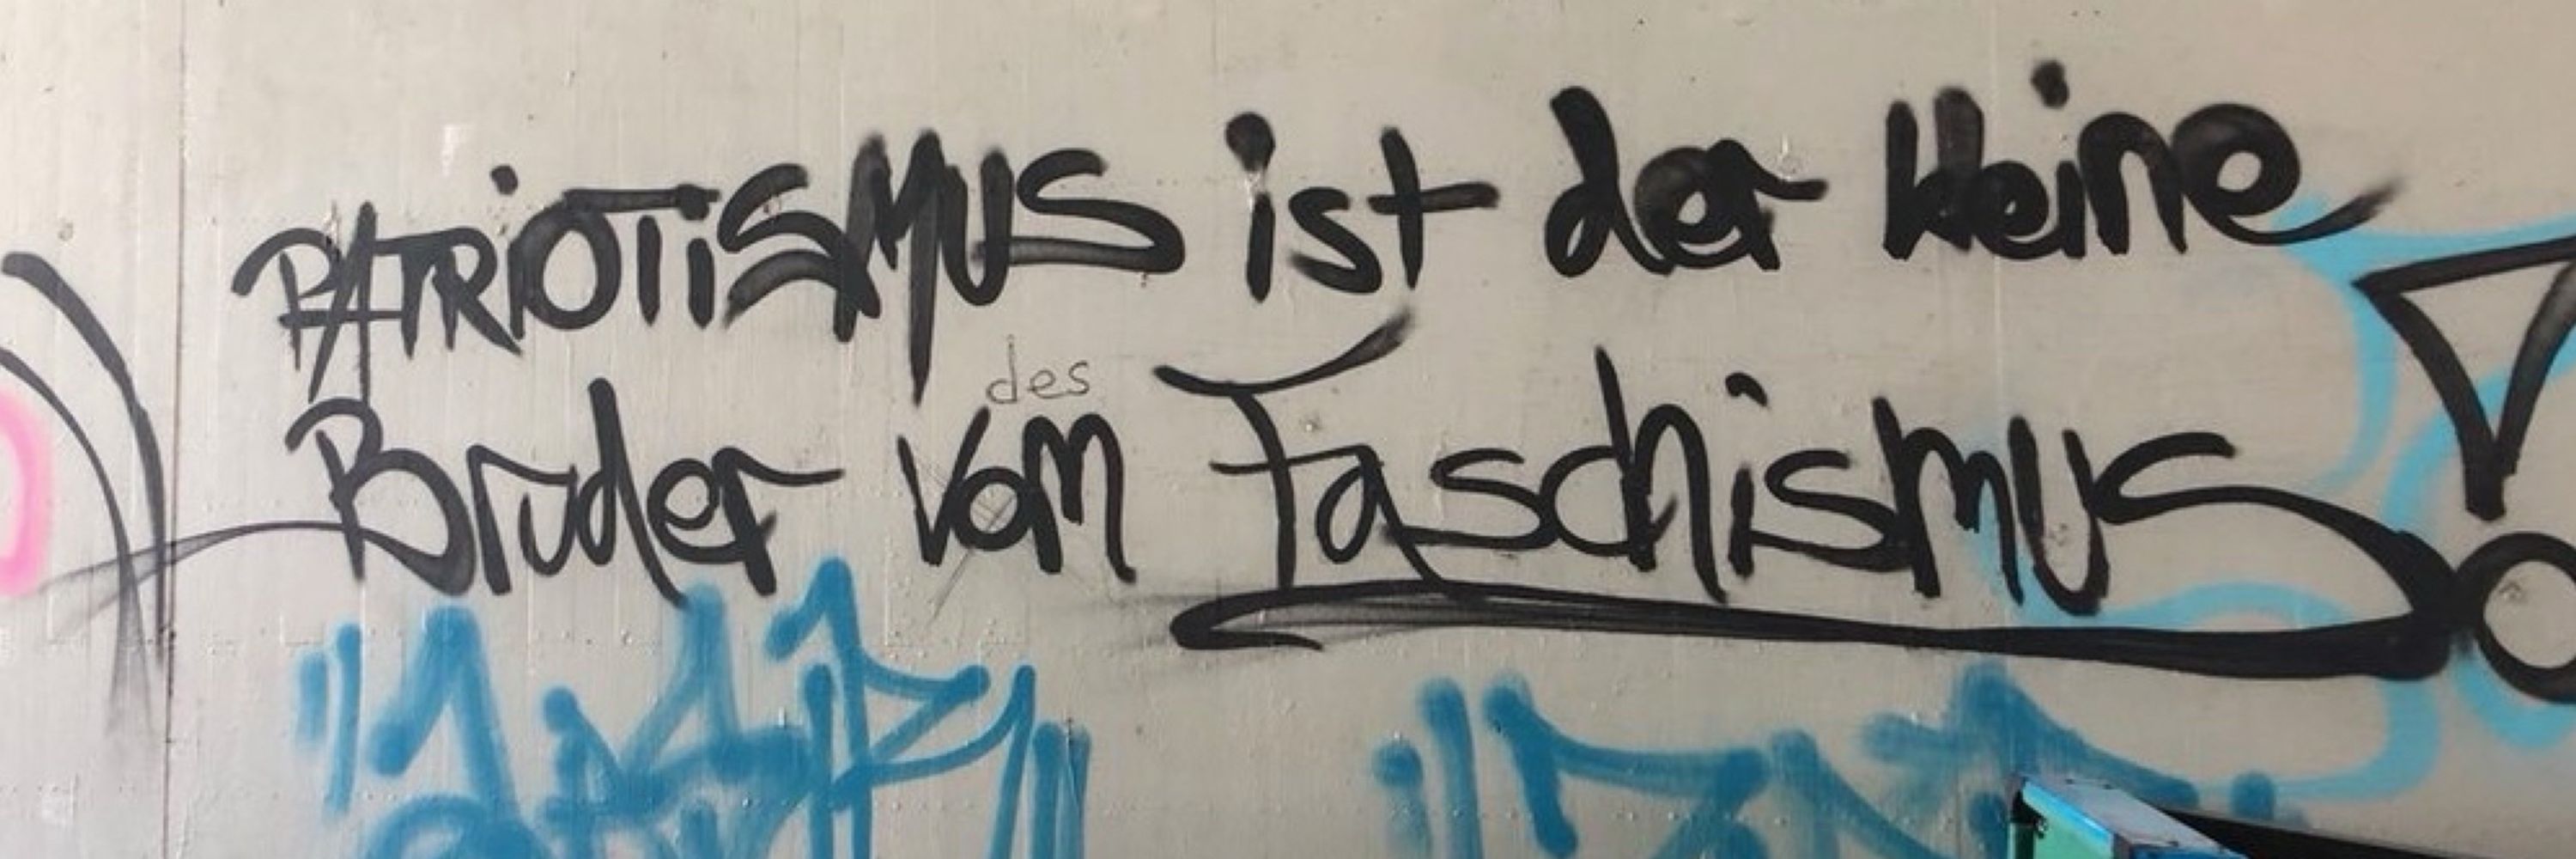 PATRiOTiSMUS ist der kleine
des
Bruder vom Faschismus!